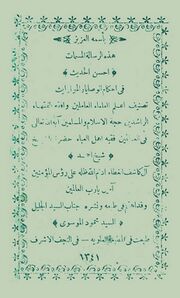 باسمه العزيز
هذه الرسالة المسمات
﴿ احسن الحديث ﴾
في احكام الوصايا والمواريث
تصنيف افضل العلماء العاملين وافقه الفقهاء
الراشدين حجة الاسلام والمسلمين آية الله تعالى
في العالمين فقيه اهل العباء حضرة الشيخ
﴿ شيخ احمد ﴾
آل كاشف الغطاء ادام الله ظله على رؤس المؤمنين
آمين يارب العالمين
وقد امر في طبعه ونشره جناب السيد الجليل
﴿ السيد محمود الموسوي ﴾
طبعت في المطبعة العلوية — في النجف الاشرف
١٣٤١